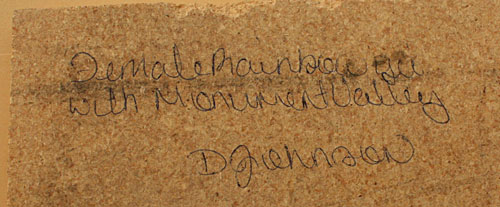 Female Rainbow Yei
with Monument Valley
D Johnson